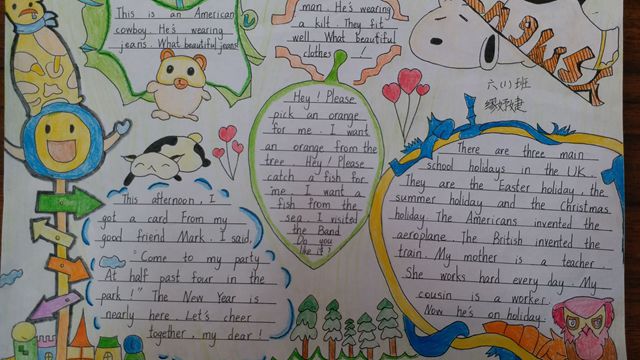 This is an American
cowboy. He's wearing
jeans. What beautiful jeans!
man. He's wearing
a kilt. They fit
well. What beautiful
clothes
六(1)班
Hey! Please
pick an orange
for me. I want
an orange from the
tree. Hey! Please
catch a fish for
me. I want a
fish from the
sea. I visited
the Band
Do you
like it?
There are three main
school holidays in the UK.
They are the Easter holiday, the
summer holiday and the Christmas
holiday. The Americans invented the
aeroplane. The British invented the
train. My mother is a teacher.
She works hard every day. My
cousin is a worker.
Now he's on holiday.
This afternoon, I
got a card from my
good friend Mark. I said,
"Come to my party
At half past four in the
park!" The New Year is
nearly here. Let's cheer
together, my dear!